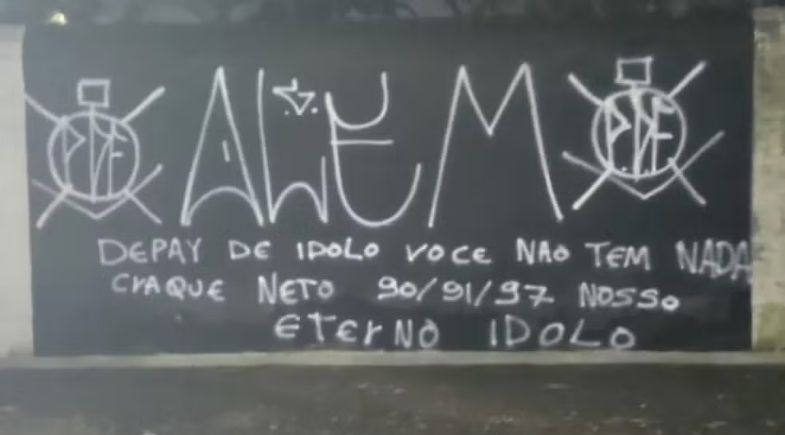 P.D.F ALEM P.D.F
DEPAY DE IDOLO VOCE NAO TEM NADA
CrAQUE NETO 90/91/97 NOSSO
ETErNO IDOLO